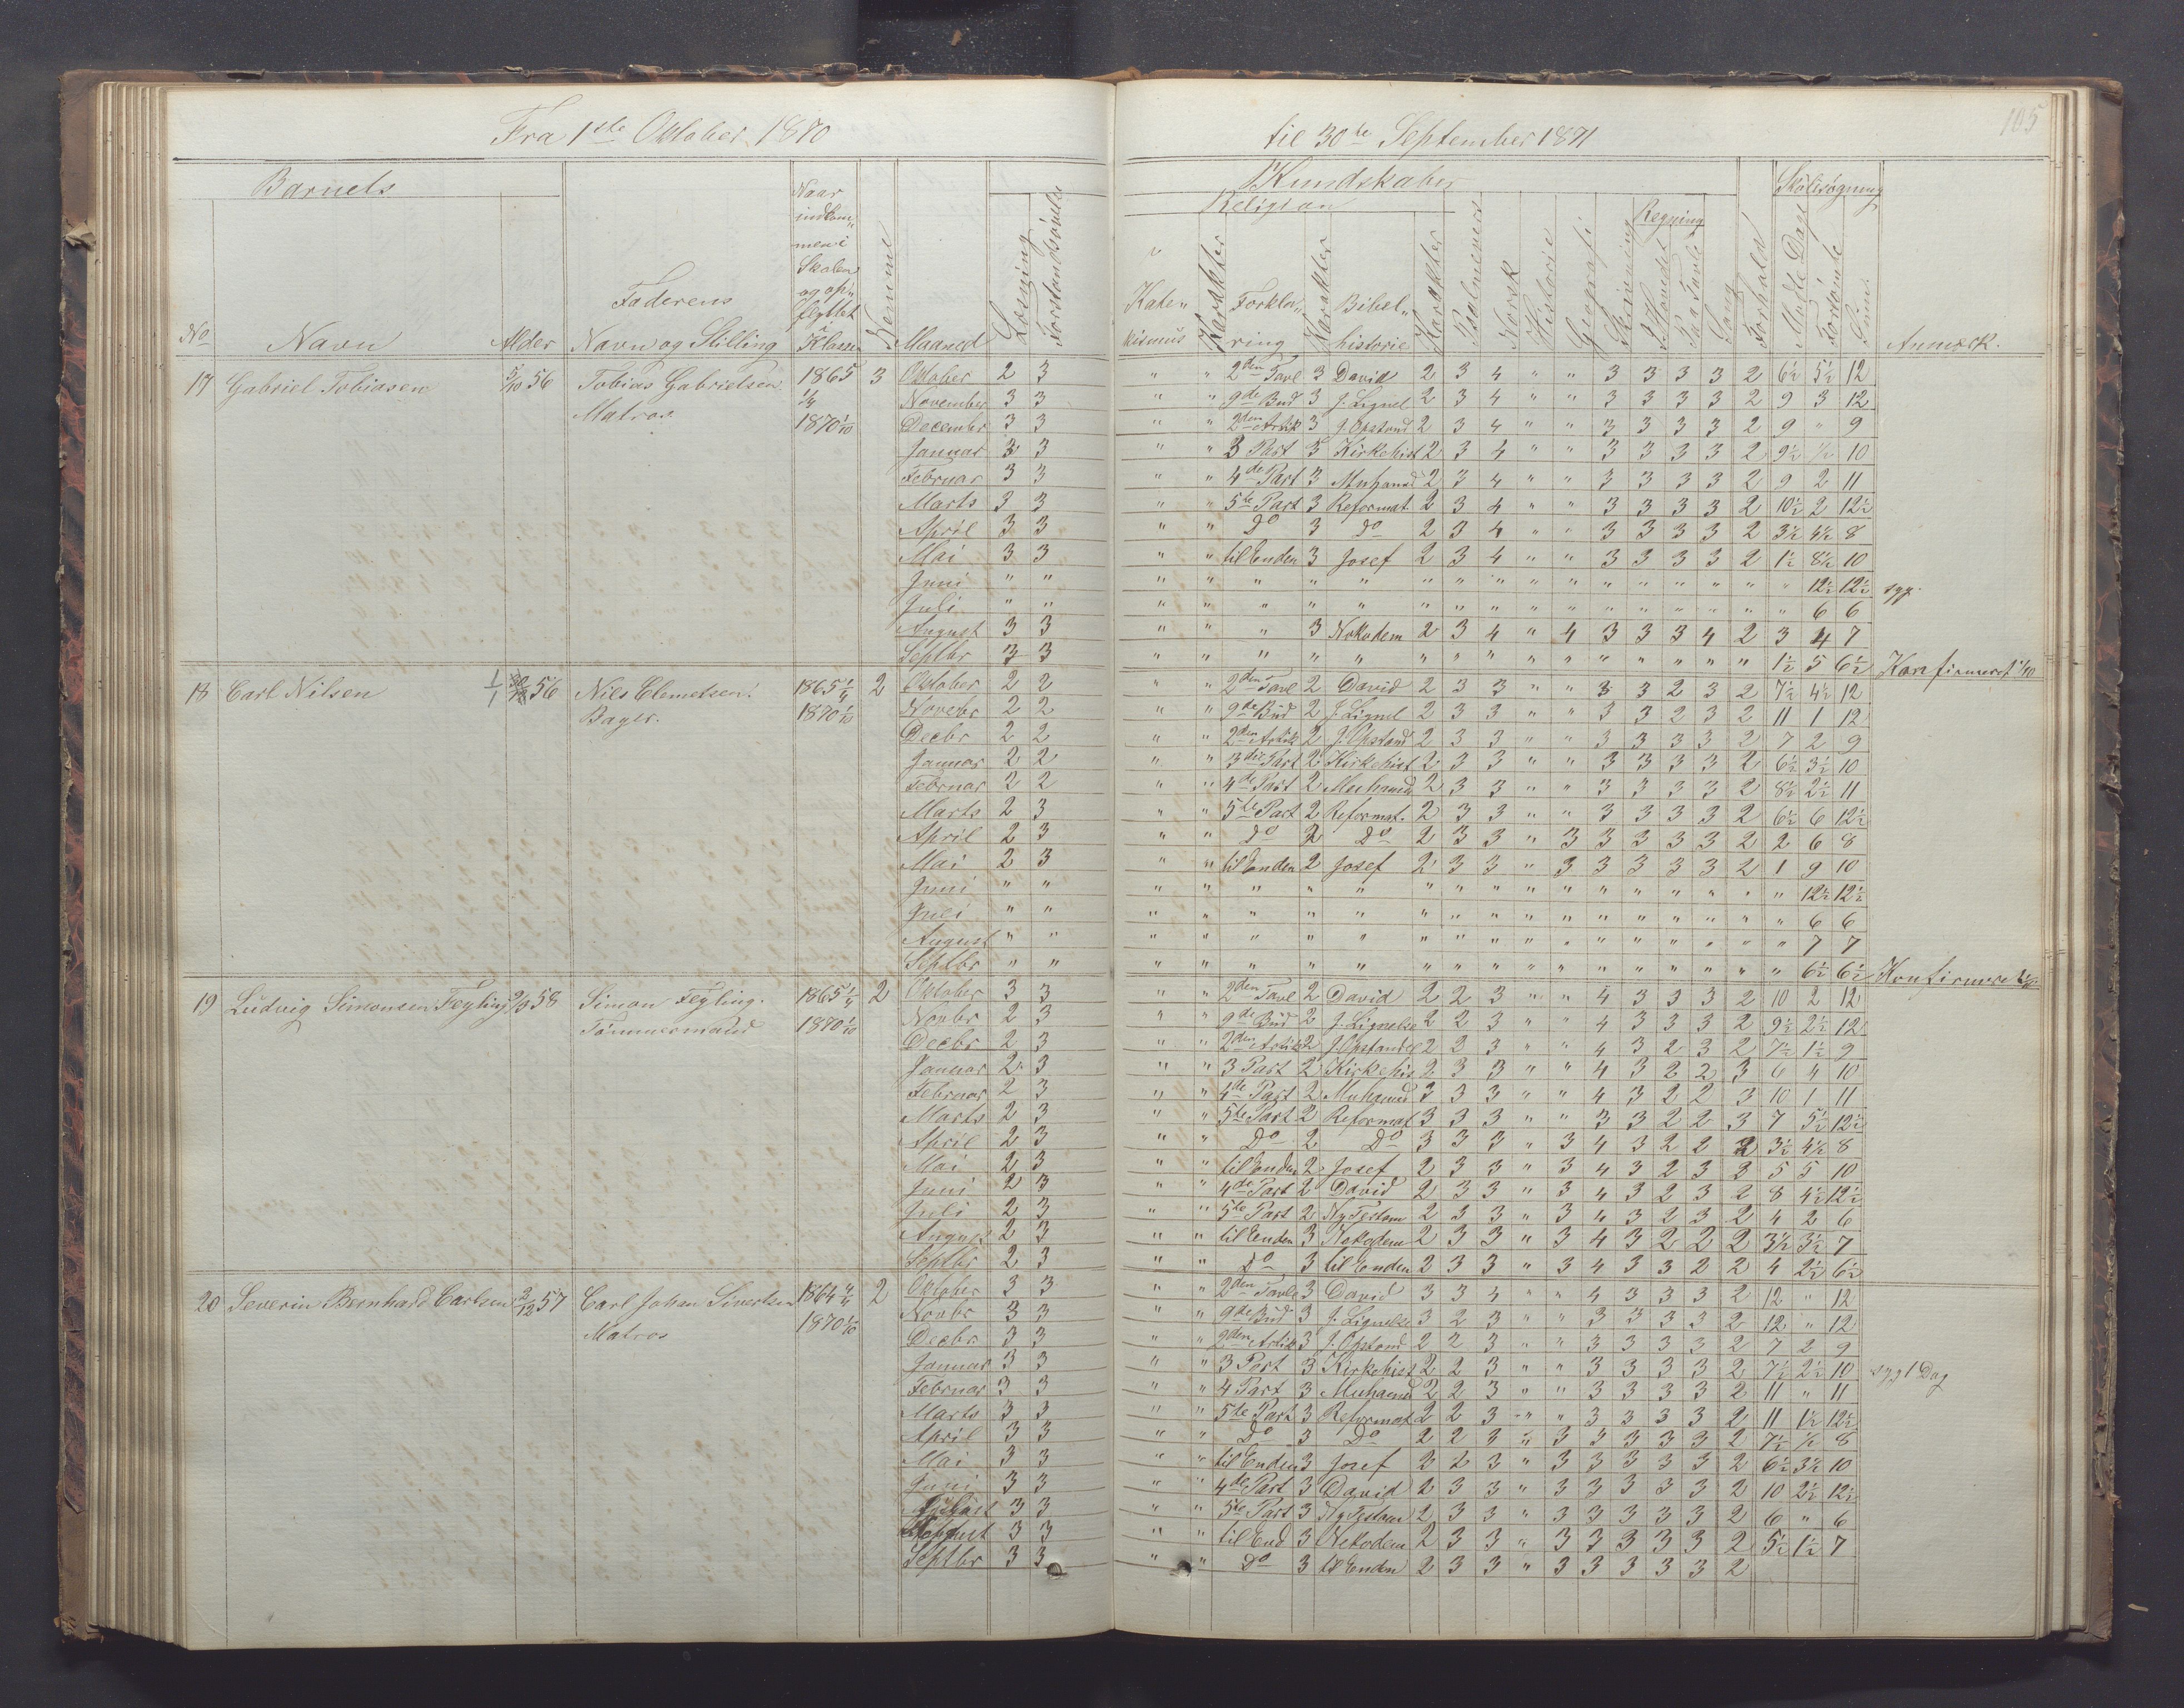 105
Fra 1ste Oktober 1870 til 30te September 1871
Barnets Kundskaber Skolesøgning
Religion Regning
No Navn Alder Faderens Navn og Stilling Naar indkommen i Skolen og opflyttet i Klassen Nemme Maaned Læsning Forstandsøvelse Katekismus Karakter Forklaring Karakter Bibelhistorie Karakter Psalmevers Norsk Historie Geografi Skrivning I Hovedet Paa Tavle Sang Forhold Mødte Dage Forsømte Sum Anmærk.
17 Gabriel Tobiasen 5/10 56 Tobias Gabrielsen 1865 3 Oktober 2 3 " " 2den Tavl 3 David 2 3 4 " " 3 3 3 3 2 6½ 5½ 12
1/4 November 3 3 " " 9de Bud 3 J. Lignel 2 3 4 " " 3 3 3 3 2 9 3 12
Matros 1870 1/10 December 3 3 " " 2den Artik 3 J. Opstand 2 3 4 " " 3 3 3 3 2 9 " 9
Januar 3 3 " " 3 Part 3 Kirkehist 2 3 4 " " 3 3 3 3 2 9½ ½ 10
Februar 3 3 " " 4de Part 3 Muhamed 2 3 4 " " 3 3 3 3 2 9 2 11
Marts 3 3 " " 5te Part 3 Reformat. 2 3 4 " " 3 3 3 3 2 10½ 2 12½
April 3 3 " " Do 3 Do 2 3 4 " " 3 3 3 3 2 3½ 4½ 8
Mai 3 3 " " til Enden 3 Josef 2 3 4 " " 3 3 3 3 2 1½ 8½ 10
Juni " " " " " " " " " " " " " " " " " " " 12½ 12½ syg.
Juli " " " " " " " " " " " " " " " " " " " 6 6
August 3 3 " " " 3 Nokodem 2 3 4 " 4 3 3 3 4 2 3 4 7
Septbr 3 3 " " " " " " " " " " " " " " " 1½ 5 6½ Konfirmeret 1/10
18 Carl Nilsen 1/1 56 Niels Clemetsen 1865 1/4 2 Oktober 2 2 " " 2den Tavl 2 David 2 3 3 " " 3 3 2 3 2 7½ 4½ 12
Bager. 1870 1/10 Novebr 2 2 " " 9de Bud 2 J. Lignel 2 3 3 " " 3 3 2 3 2 11 1 12
Decbr 2 2 " " 2den Artik 2 J. Opstand 2 3 3 " " 3 3 3 3 2 7 2 9
Januar 2 2 " " 3die Part 2 Kirkehist 2 3 3 " " 3 3 3 3 2 6½ 3½ 10
Februar 2 2 " " 4de Part 2 Muhamed 2 3 3 " " 3 3 3 3 2 8½ 2½ 11
Marts 2 3 " " 5te Part 2 Reformat. 2 3 3 " " 3 3 3 3 2 6½ 6 12½
April 2 3 " " Do 2 Do 2 3 3 " 3 3 3 3 3 2 2 6 8
Mai 2 3 " " til Enden 2 Josef 2 3 3 " 3 3 3 3 3 2 1 9 10
Juni " " " " " " " " " " " " " " " " " " " 12½ 12½
Juli " " " " " " " " " " " " " " " " " " " 6 6
August " " " " " " " " " " " " " " " " " " " 7 7
Septbr " " " " " " " " " " " " " " " " " " " 6½ 6½ Konfirmeret
19 Ludvig Simonsen Feyling 58 Simon Feyling. 1865 1/4 2 Oktober 3 3 " " 2den Tavl 2 David 2 2 3 " " 4 3 3 3 2 10 2 12
Tømmermand 1870 1/10 Novbr 2 3 " " 9de Bud 2 J. Lignelse 2 2 3 " " 4 3 3 3 2 9½ 2½ 12
Decbr 2 3 " " 2den Artik 2 J. Opstandel 2 2 3 " " 4 3 2 3 2 7½ 1½ 9
Januar 2 3 " " 3 Part 2 Kirkehis. 2 3 3 " " 4 3 2 2 3 6 4 10
Februar 2 3 " " 4de Part 2 Muhamed 3 3 3 " " 4 3 2 2 3 10 1 11
Marts 2 3 " " 5te Part 2 Reformat 3 3 3 " " 3 3 2 2 3 7 5½ 12½
April 2 3 " " Do 2 Do 3 3 3 " 3 4 3 2 2 2 3½ 4½ 8
Mai 2 3 " " til Enden 2 Josef 2 3 3 " 3 4 3 2 3 2 5 5 10
Juni 2 3 " " 4de Part 2 David 2 3 3 " 3 4 3 2 3 2 8 4½ 12½
Juli 2 3 " " 5te Part 2 Ny Testam 2 3 3 " 3 4 3 2 3 2 4 2 6
August 2 3 " " til Enden 3 Nekodem 2 3 3 " 3 4 3 2 2 2 3½ 3½ 7
Septbr 2 3 " " Do 3 til Enden 2 3 3 " 3 4 3 3 2 2 4 2½ 6½
20 Severin Bernhard Carlsen 2/12 57 Carl Johan Sivertsen 1864 2 Oktober 3 3 " " 2den Tavle 3 David 3 3 4 " " 4 3 3 3 2 12 " 12
Matros 1870 1/10 Novbr 3 3 " " 9de Bud 3 J. Lignelse 3 2 3 " " 3 3 3 3 2 12 " 12
Decbr 3 3 " " 2den Artik 3 J. Opstand 2 2 3 " " 3 3 3 3 2 7 2 9
Januar 3 3 " " 3 Part 3 Kirkehist 2 2 3 " " 3 3 3 3 2 7½ 2½ 10 syg 1 Dag
Februar 3 3 " " 4 Part 3 Muhamed 2 2 3 " " 3 3 3 3 2 11 " 11
Marts 3 3 " " 5te Part 3 Reformat 2 2 3 " " 3 3 3 3 2 11 1½ 12½
April 3 3 " " Do 3 Do 2 2 3 " 3 3 3 3 3 2 7½ ½ 8
Mai 3 3 " " til Enden 3 Josef 3 2 3 " 3 3 3 3 3 2 6½ 3½ 10
Juni 3 3 " " 4de Part 3 David 2 3 3 " 3 3 3 3 3 2 10 2½ 12½
3 3 " " 5te Part 3 Ny Testam 2 3 3 " 3 3 3 3 3 2 6 " 6
3 3 " " til End 3 Nekodem 2 3 3 " 3 3 3 3 3 2 5½ 1½ 7
Septbr 3 3 " " Do 3 til Enden 2 3 3 " 3 3 3 3 3 2